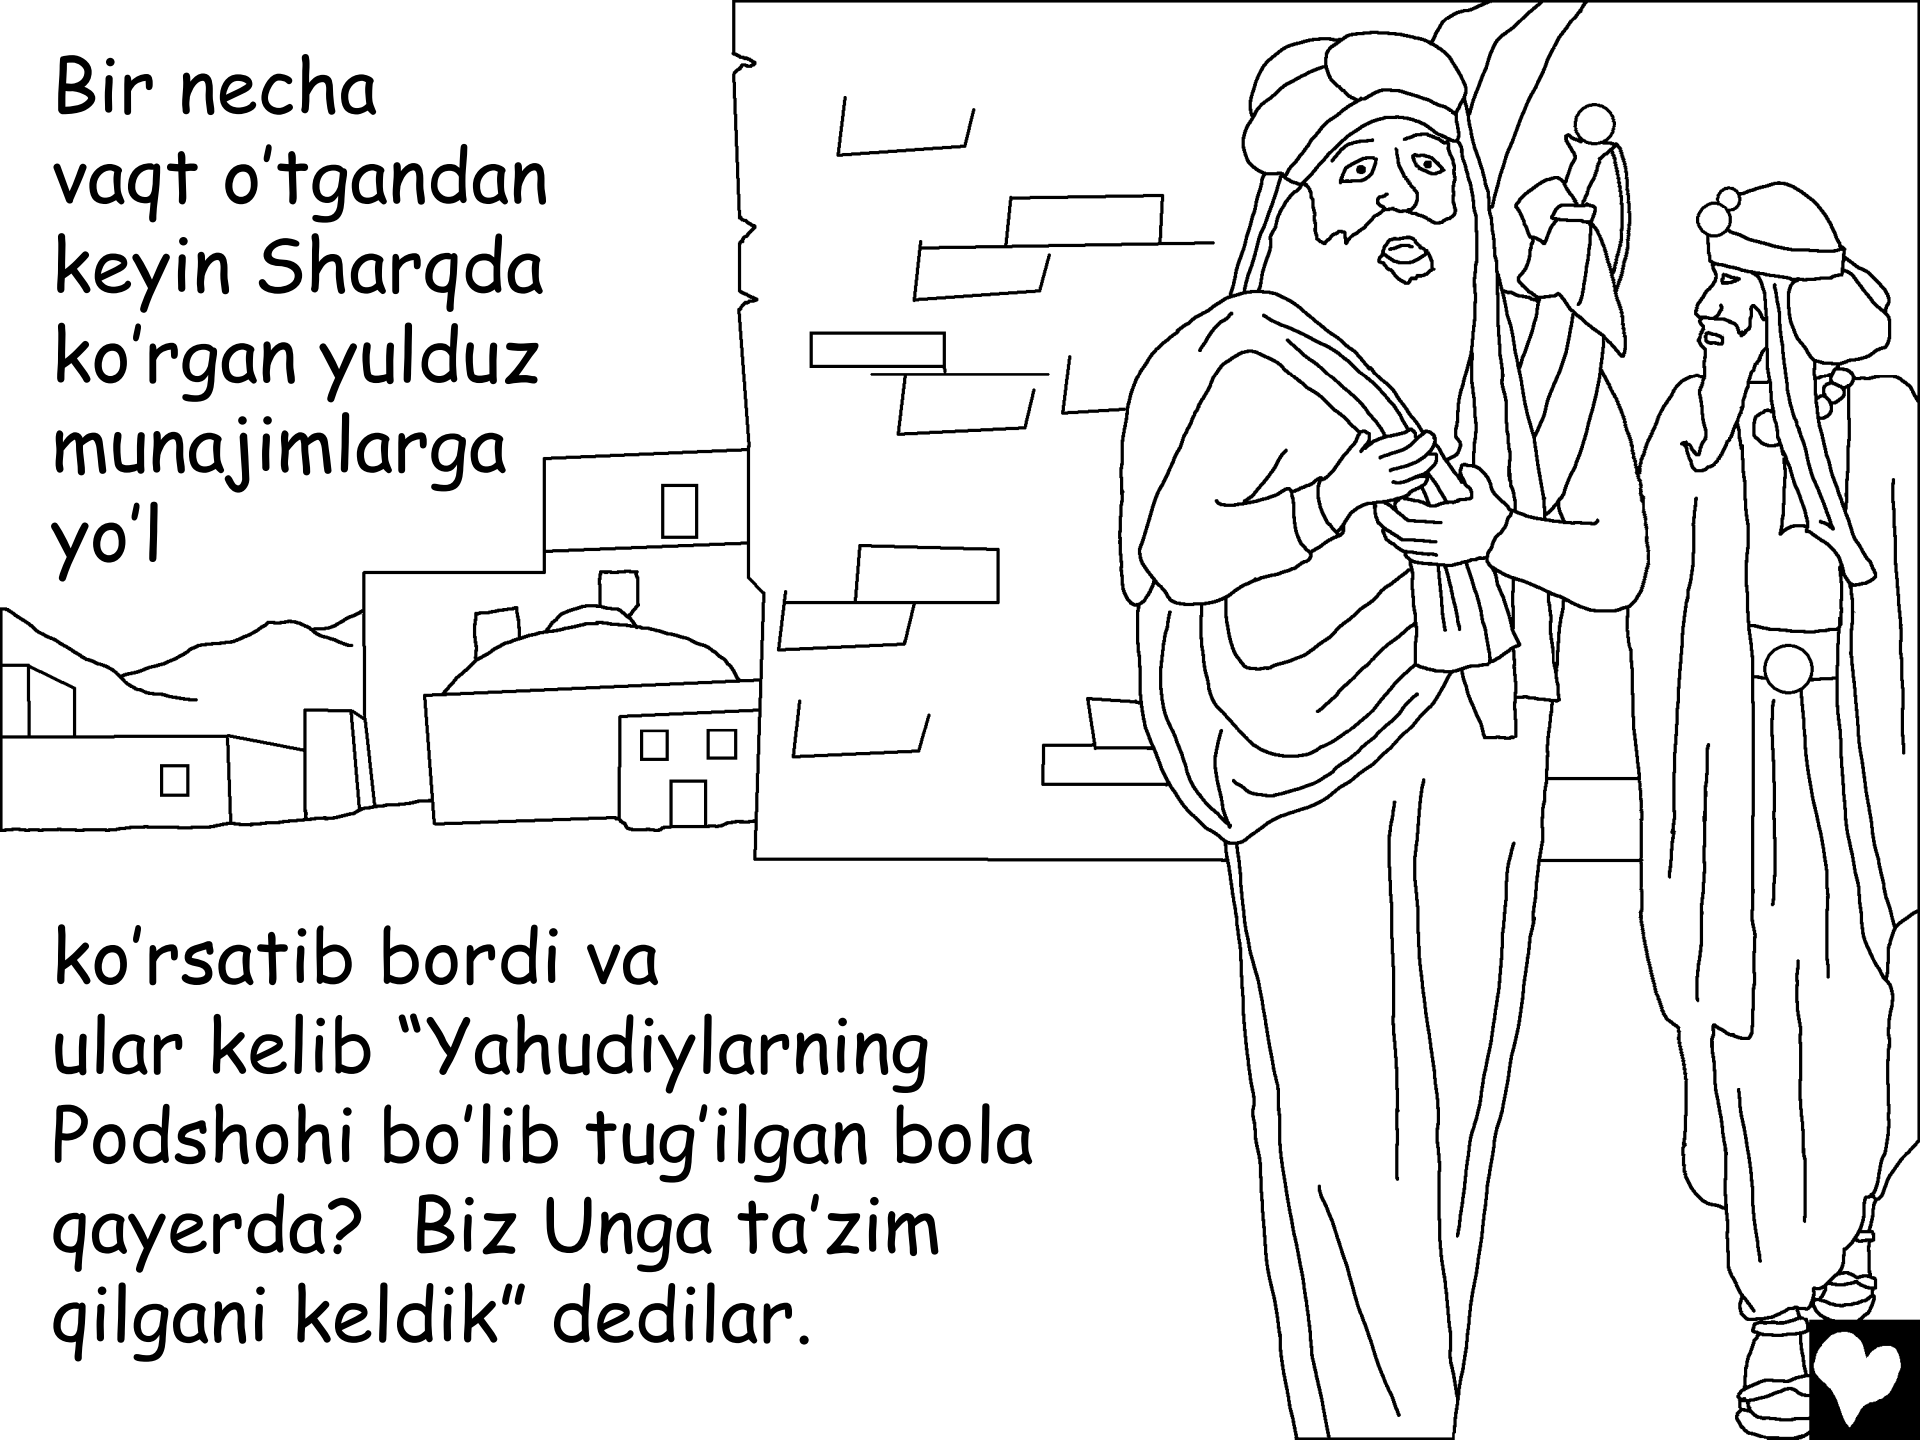 Bir necha
vaqt o’tgandan
keyin Sharqda
ko’rgan yulduz
munajimlarga
yo’l
ko’rsatib bordi va
ular kelib “Yahudiylarning
Podshohi bo’lib tug’ilgan bola
qayerda?  Biz Unga ta’zim
qilgani keldik” dedilar.